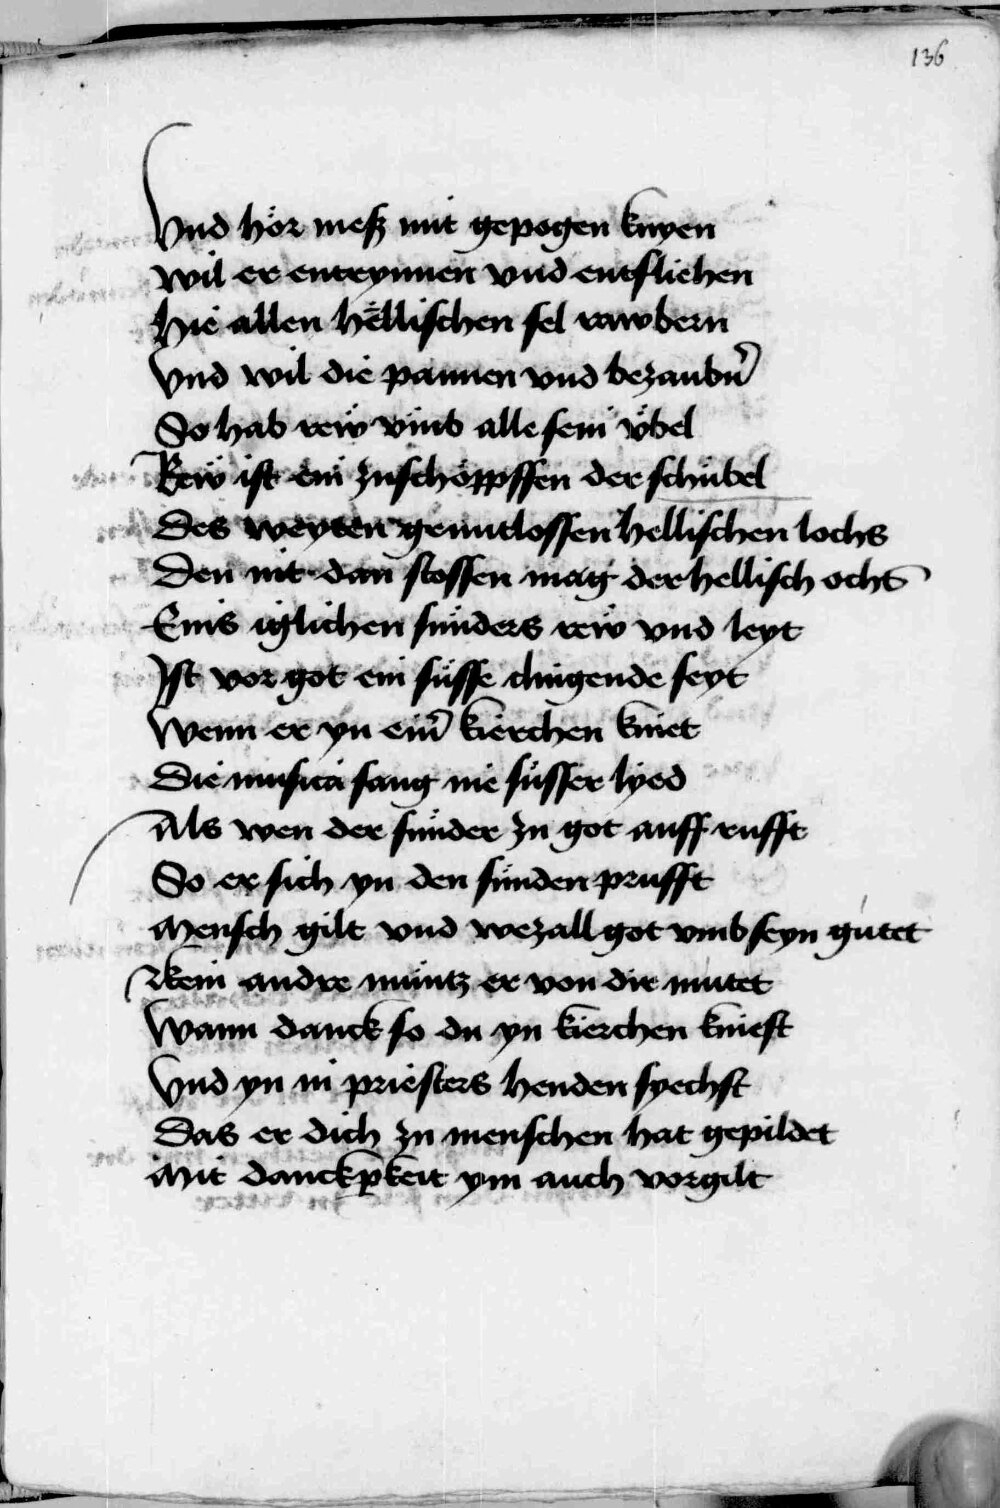 136
Vnd hör mesz mit gepogen knyen
wil er entrynnen vnd entfliehen
Hie allen hellischen sel rawbern
Vnd wil die pannen vnd bezaubn̄
So hab rew vmb alle sein vbel
Rew ist ein zuschoppffen der schubel
Des weyten gruntlossen hellischen lochs
Den nit dan stossen mag der hellisch ochs
Eins iglichen sunders rew vnd leyt
Ist vor got ein süsse clingende seyt
Wenn er yn ein̄ kierchen kniet
Die musica sang nie süsser lyed
Als wen der sunder zu got auff rufft
So er sich yn den sunden prufft
Mensch gilt vnd wezall got vmb seyn gutet
Kein andre muntz er von dir mutet
Wann danck so du yn kierchen kniest
Vnd yn in priesters henden syechst
Das er dich zu menschen hat gepildet
Mit danckpkeit ym auch vorgilt